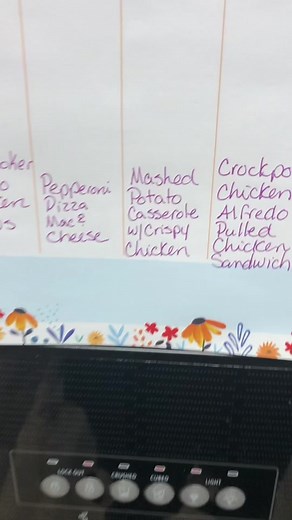 Pepperoni
Pizza
Mac &
Cheese
Mashed
Potato
Casserole
w/Crispy
Chicken
Crockpo
Chicken
Alfredo
Pulled
Chicken
Sandwich
LOCK OUT
CRUSHED
CUBED
LIGHT